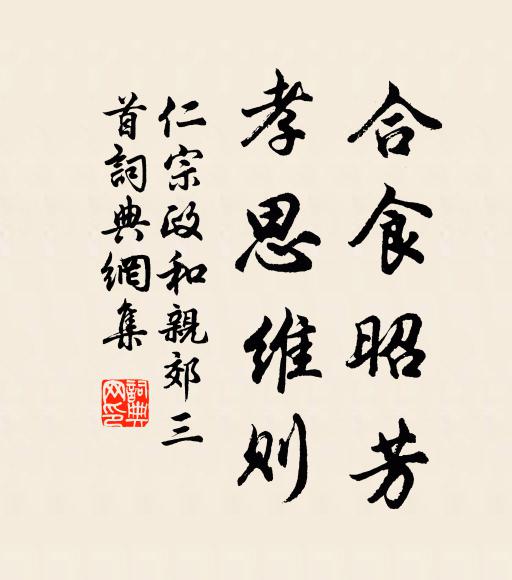 合食昭芳
孝思維則
仁宗政和親郊三
首詞典網集
詞典
网印